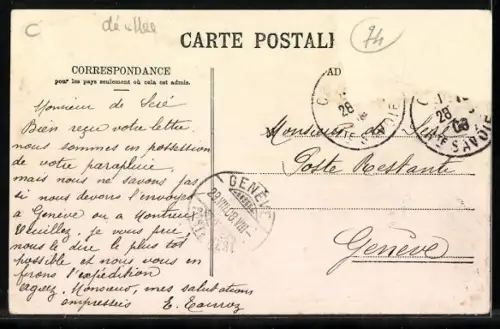 C
74
CARTE POSTALE
CORRESPONDANCE
pour les pays seulement où cela est admis.
AD
28
08
Hte SAVOIE
28
08
Hte SAVOIE
Monsieur de
Bien reçu votre lettre,
nous sommes en possession
de votre parapluie,
mais nous ne savons pas
si nous devons l'envoyer
à Genève ou à Montreux
Veuillez, je vous prie,
nous le dire le plus tôt
possible et nous vous en
ferons l'expédition
Agréez, Monsieur, mes salutations
empressées E.
GENÈVE
29.VIII.08.VIII
Monsieur de
Poste Restante
Genève